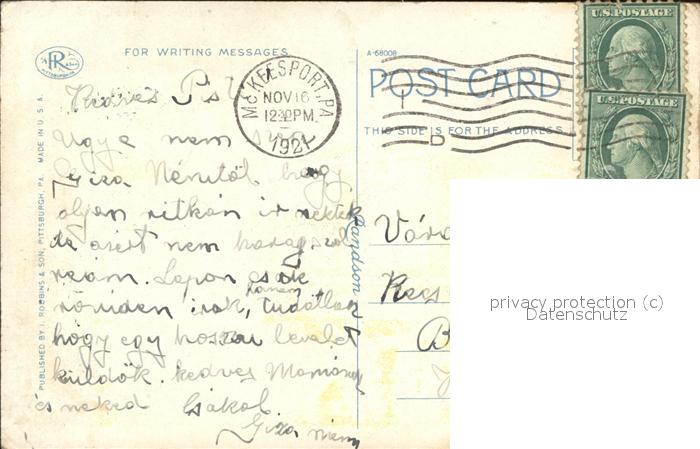 U.S. POSTAGE
U.S. POSTAGE
FOR WRITING MESSAGES
A-68008
POST CARD
THIS SIDE IS FOR THE ADDRESS
PITTSBURGH, PA.
MADE IN U.S.A.
PUBLISHED BY I. ROBBINS & SON, PITTSBURGH, PA.
MCKEESPORT, PA
NOV 16
12 30 PM
1921
Kedves
Ugye nem
Giza Nénitől hogy
olyan ritkán ir nektek
de azért nem haragszol
reám. Lapon csak
röviden irok,
hogy egy hosszu levelet
küldök. kedves Mamának
és neked Csókol
Giza néni
Vár
Kecs
B
privacy protection (c)
Datenschutz